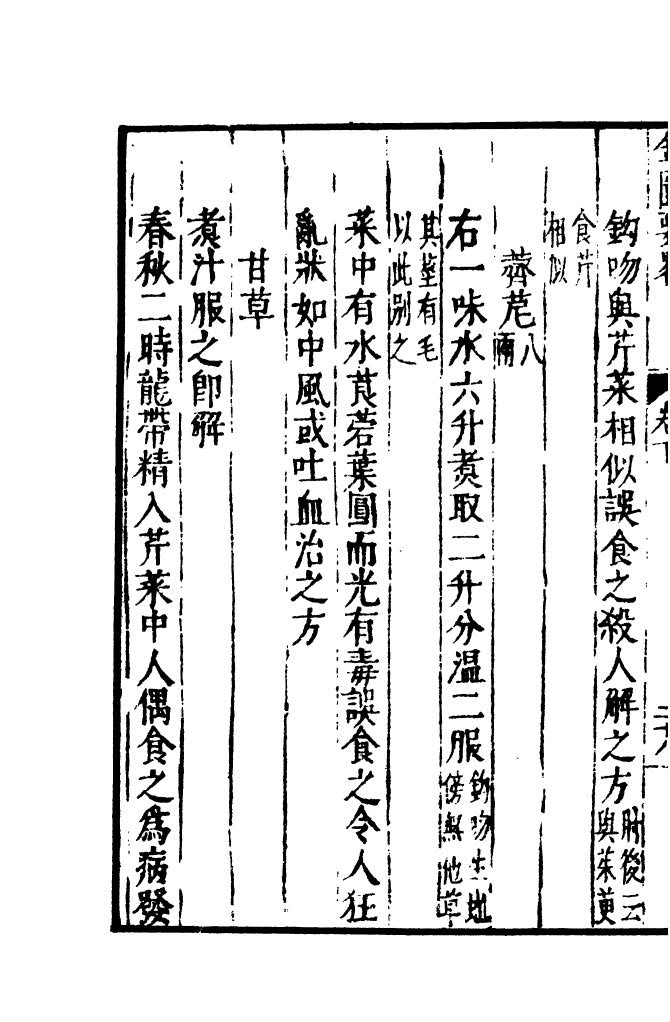 金匱要略 卷下 二十八
鈎吻與芹菜相似誤食之殺人解之方肘後云與茱萸
食芹相似
薺苨八兩
右一味水六升煮取二升分溫二服鈎吻生地傍無他草
其莖有毛以此别之
菜中有水莨菪葉圓而光有毒誤食之令人狂
亂狀如中風或吐血治之方
甘草
煮汁服之卽解
春秋二時龍帶精入芹菜中人偶食之爲病發